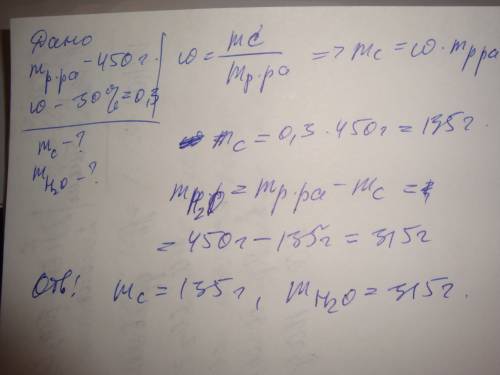 Дано
m р-ра - 450 г.
ω - 30% = 0,3
m с - ?
m H₂O - ?
ω = mс / m р-ра => m с = ω · m р-ра
m с = 0,3 · 450 г = 135 г
m H₂O = m р-ра - m с =
= 450 г - 135 г = 315 г
Отв: m с = 135 г, m H₂O = 315 г.